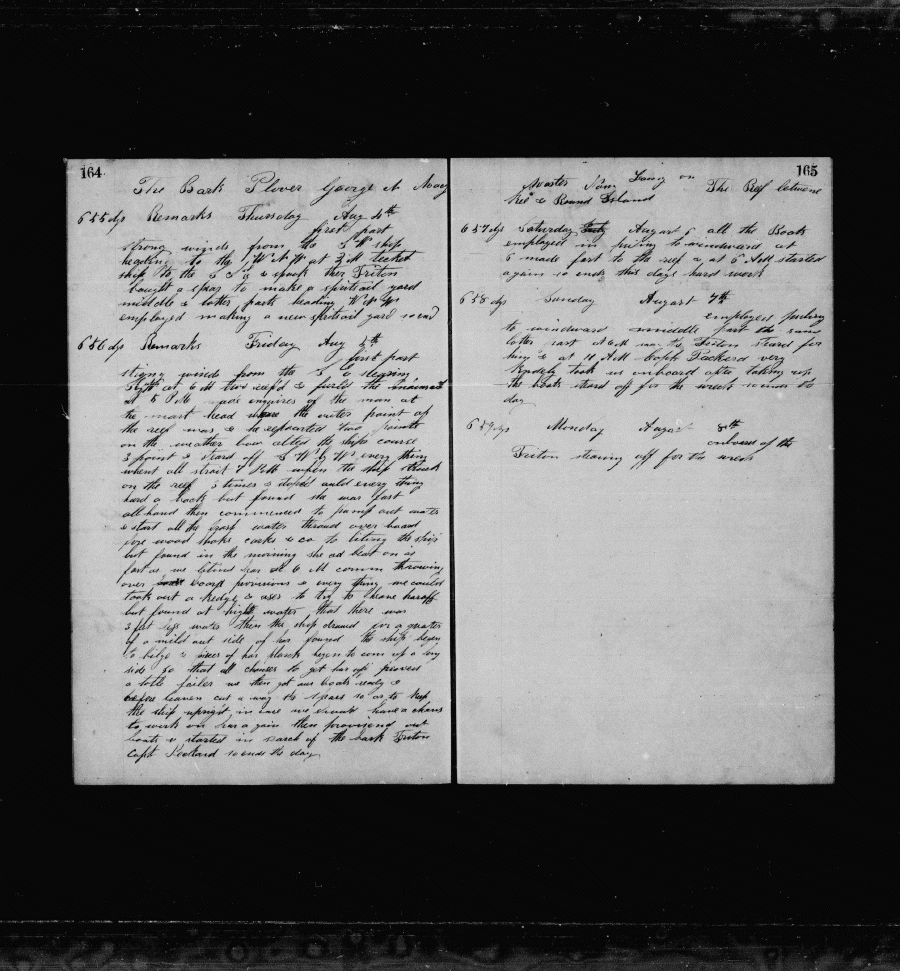 164
The Bark Plover George A
655 dys Remarks Thursday Aug 4th
first part
strong winds from the S W ship
heading to the W N W at 3 M tecked
ship to the S & spock ther Triton
bought a spar to make a spiritsail yard
middle & latter parts heading W N W
employed making a new spritsail yard so end
656 dys Remarks Friday Aug 5th
first part
strong winds from the S stearing
at 6 M two reef'd & furled the
at 5 P M enquires of the man at
the mast head where the outer point of
the reef was & he reported two points
on the weather bow alterd the ships course
3 point & steard off S W by W every thing
whent all strait M when the ship struck
on the reef 3 times & stop'd auld every thing
hard a back but found she was fast
all hand then commenced to pump out water
& start all the fresh water throud over board
fire wood hooks casks & co to liting the ship
but found in the morning she ad beat on as
fast as we litend har at 6 M comm throwing
over board provisions & every thing we could
took out a kedge & to try to heave har off
but found at hight water that there was
3 feet less water then the ship drawd for a quarter
of a mild out side of har found the ship began
to bilge & pieces of har plank began to com up a long
side so that all chanses to get har off proved
a totle failer we then got our boats ready &
before leaven cut a way the spars so as to keep
the ship upright in case we should have a chans
to work on har a gain then provisiond out
boats & started in sarch of the bark Triton
Capt Packard so ends the day
165
Master Long on The Reef between
& Round Island
657 dys Saturday August 6 all the Boats
employed in puling to windward at
6 made fast to the reef at 6 AM started
again so ends this days hard work
658 dys Sunday August 7th
employed puling
to windward middle part the same
latter part at 6 M saw the Triton steard for
har & at 11 A M Capt Packerd very
kindely took us onboard after taking up
the boats steard off for the wreck so ends the
day
659 dys Monday August 8th
onboard of the
Triton stearing off for the wreck